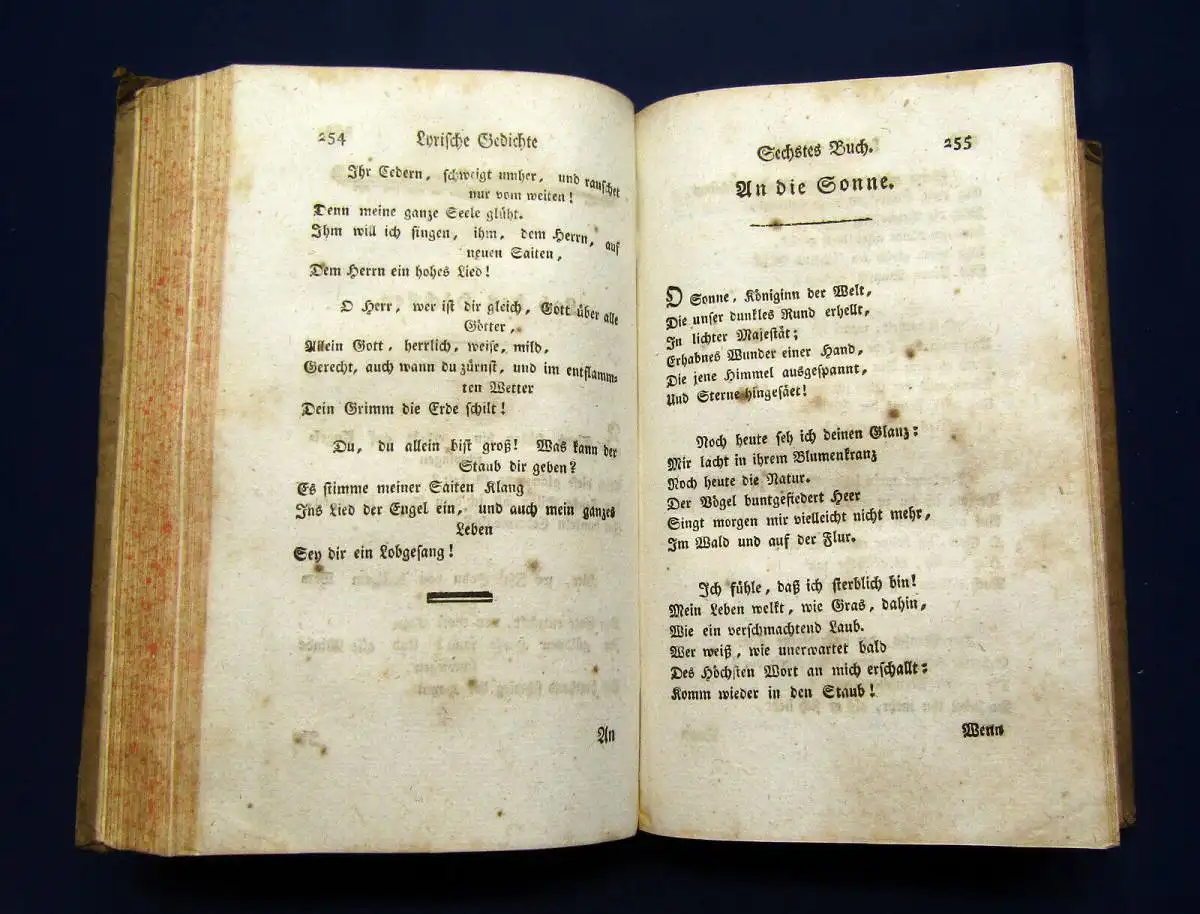 254 Lyrische Gedichte
Ihr Cedern, schweigt umher, und rauschet
nur vom weiten!
Denn meine ganze Seele glüht.
Ihm will ich singen, ihm, dem Herrn, auf
neuen Saiten,
Dem Herrn ein hohes Lied!
O Herr, wer ist dir gleich, Gott über alle
Götter,
Allein Gott, herrlich, weise, mild,
Gerecht, auch wann du zürnst, und im entflamm-
ten Wetter
Dein Grimm die Erde schilt!
Du, du allein bist groß! Was kann der
Staub dir geben?
Es stimme meiner Saiten Klang
Ins Lied der Engel ein, und auch mein ganzes
Leben
Sey dir ein Lobgesang!
An
Sechstes Buch. 255
An die Sonne.
O Sonne, Königinn der Welt,
Die unser dunkles Rund erhellt,
In lichter Majestät;
Erhabnes Wunder einer Hand,
Die jene Himmel ausgespannt,
Und Sterne hingesäet!
Noch heute seh ich deinen Glanz:
Mir lacht in ihrem Blumenkranz
Noch heute die Natur.
Der Vögel buntgefiedert Heer
Singt morgen mir vielleicht nicht mehr,
Im Wald und auf der Flur.
Ich fühle, daß ich sterblich bin!
Mein Leben welkt, wie Gras, dahin,
Wie ein verschmachtend Laub.
Wer weiß, wie unerwartet bald
Des Höchsten Wort an mich erschallt:
Komm wieder in den Staub!
Wenn